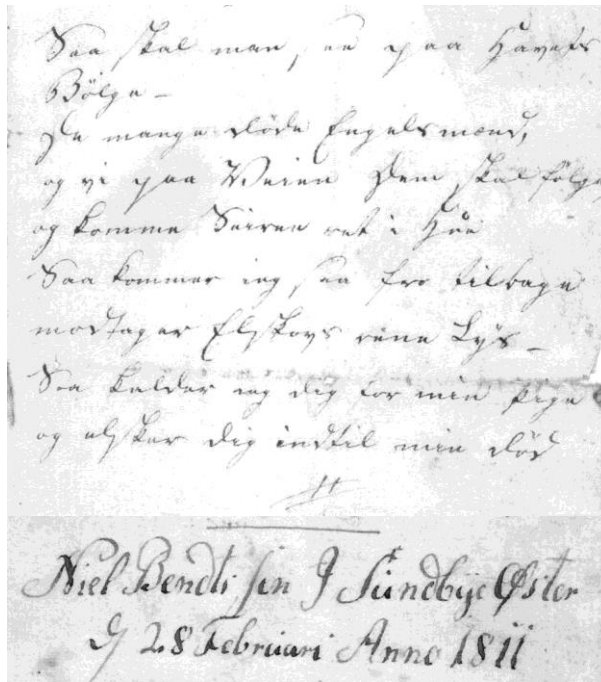 Saa skal man see paa Havets
Bölge –
De mange döde Engelsmænd,
og vi paa Veien Dem skal fölge
og komme Seiren ret i Hue
Saa kommer ieg saa fro tilbage
modtager Elskovs rene Lys –
Saa kalder ieg dig for min Pige
og elsker dig indtil min död
Niel Bendtsen J Sundbye Øster
d 28 Februari Anno 1811